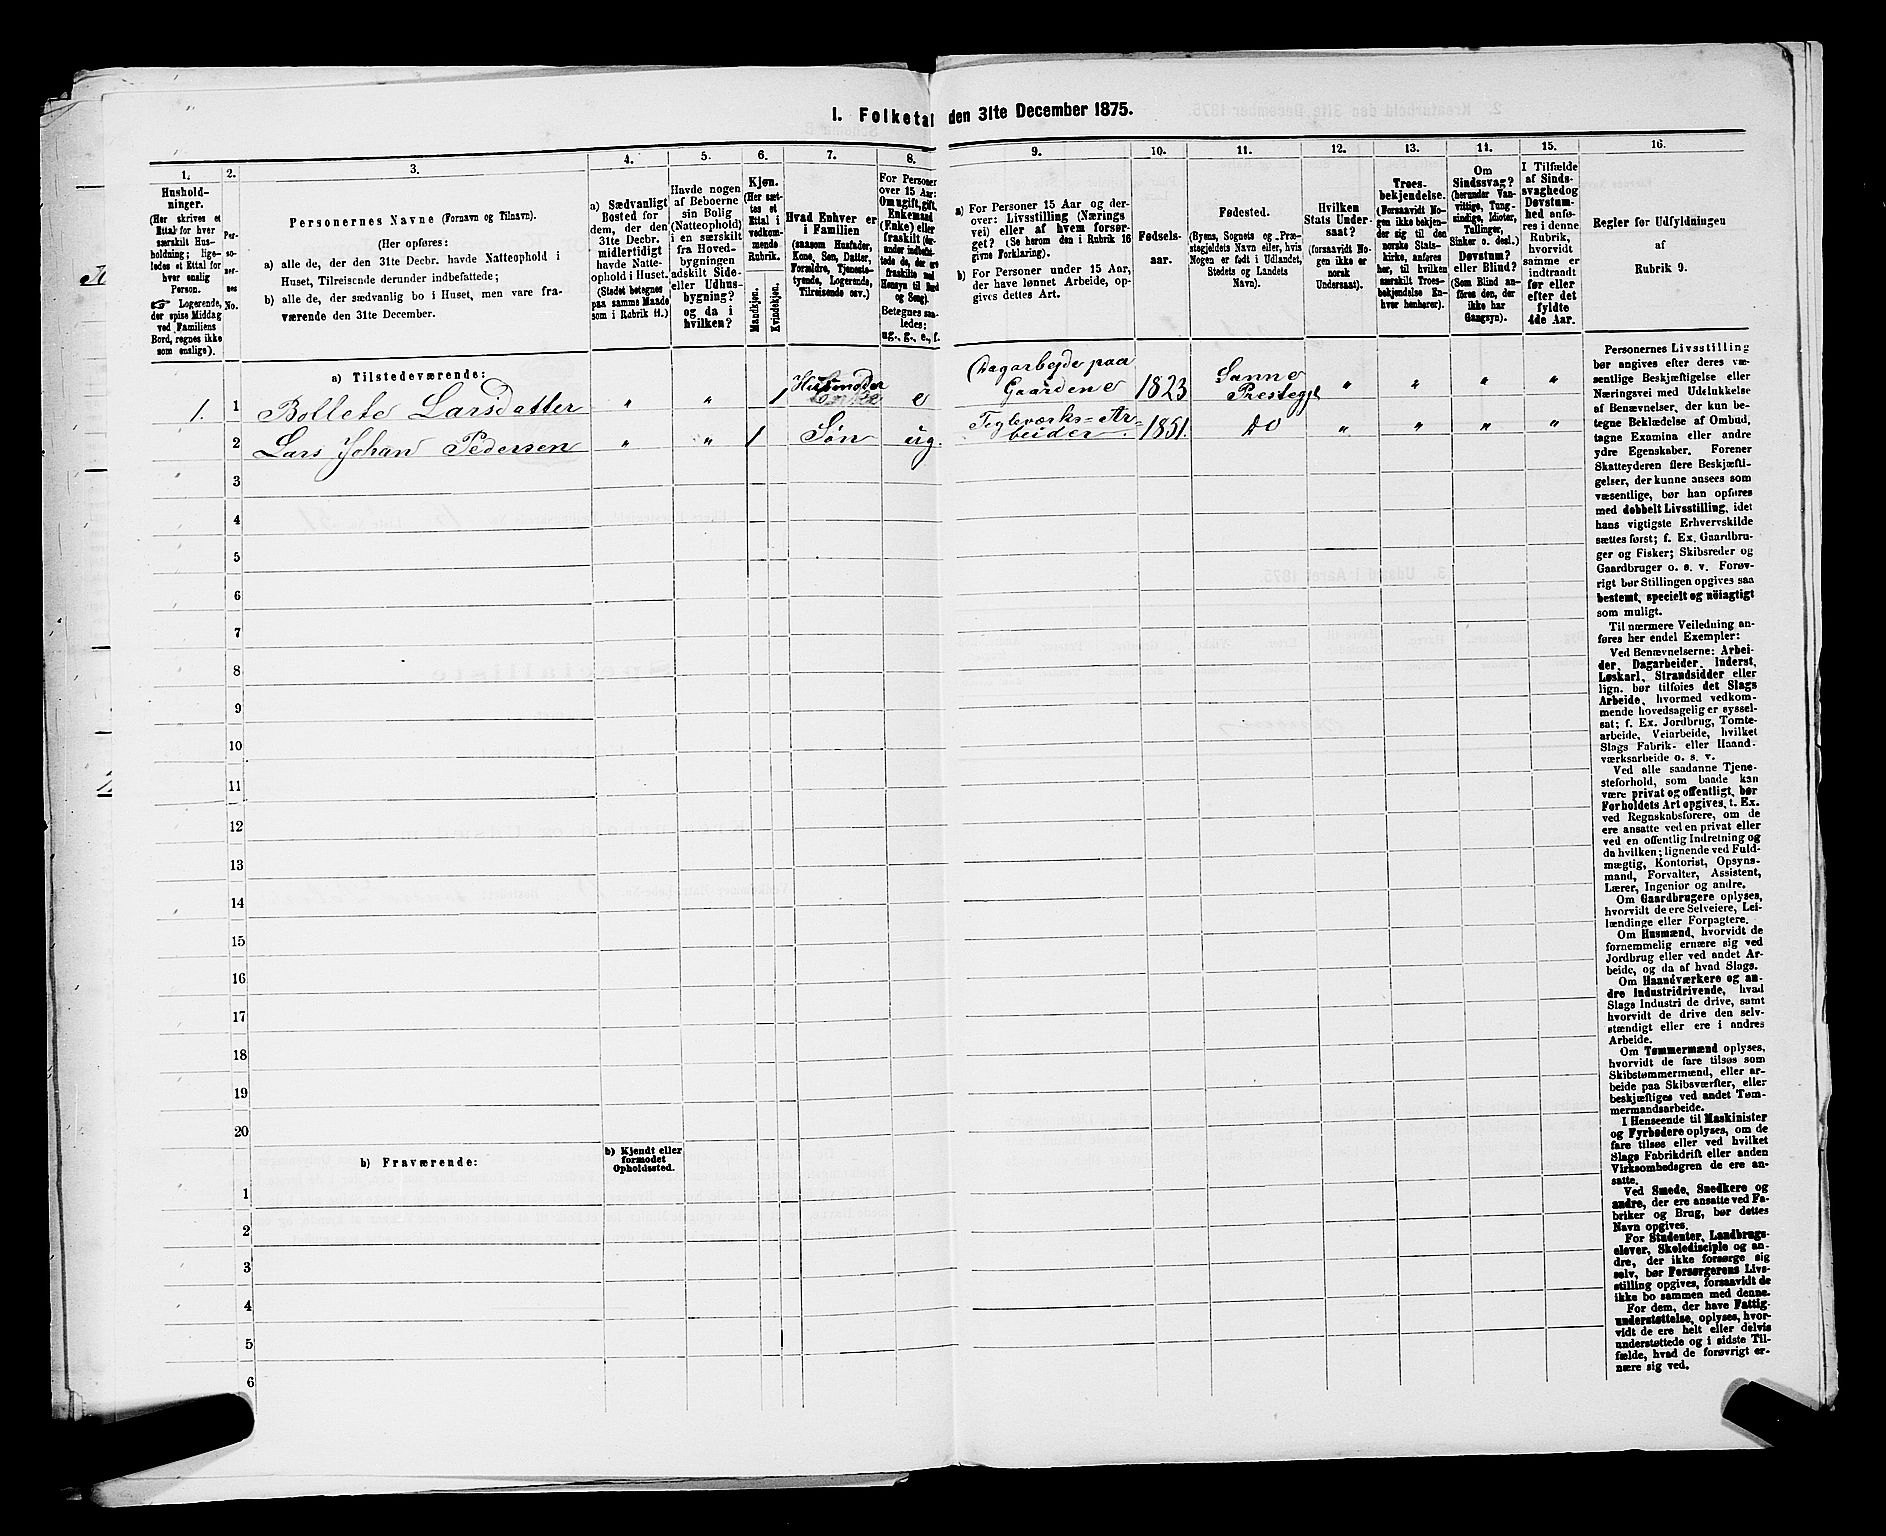 I. Folketal den 31te December 1875.
1.
Hushold-
ninger.
(Her skrives et
Ettal for hver
særskilt Hus-
holdning; lige-
ledes et Ettal for
hver enslig
Person.
☞ Logerende,
der spise Middag
ved Familiens
Bord, regnes ikke
som enslige).
2.
Per-
so-
ner-
nes
No.
3.
Personernes Navne (Fornavn og Tilnavn).
(Her opføres:
a) alle de, der den 31te Decbr. havde Natteophold i
Huset, Tilreisende derunder indbefattede;
b) alle de, der sædvanlig bo i Huset, men vare fra-
værende den 31te December.
4.
a) Sædvanligt
Bosted for
dem, der den
31te Decbr.
midlertidigt
havde Natte-
ophold i Huset.
(Stedet betegnes
paa samme Maade
som i Rubrik 11.)
5.
Havde nogen
af Beboerne
sin Bolig
(Natteophold)
i en særskilt
fra Hoved-
bygningen
adskilt Side-
eller Udhus-
bygning?
og da i
hvilken?
6.
Kjøn.
(Her sæt-
tes et
Ettal i
vedkom-
mende
Rubrik.
Mandkjøn.
Kvindekjøn.
7.
Hvad Enhver er
i Familien
(saasom Husfader,
Kone, Søn, Datter,
Forældre, Tjeneste-
tyende, Logerende,
Tilreisende osv.)
8.
For Personer
over 15 Aar:
Om ugift, gift,
Enkemand
(Enke) eller
fraskilt (her-
under indbefat-
tede de, der ere
fraskilte med
Hensyn til Bord
og Seng).
Betegnes saa-
ledes:
ug., g., e., f.
9.
a) For Personer 15 Aar og der-
over: Livsstilling (Nærings
vei) eller af hvem forsør-
get? (Se herom den i Rubrik 16
givne Forklaring).
b) For Personer under 15 Aar,
der have lønnet Arbeide, op-
gives dettes Art.
10.
Fødsels-
aar.
11.
Fødested.
(Byens, Sognets og Præ-
stegjeldets Navn eller, hvis
Nogen er født i Udlandet,
Stedets og Landets
Navn).
12.
Hvilken
Stats Under-
saat?
(forsaavidt No-
gen ikke er
norsk
Undersaat).
13.
Troes-
bekjendelse.
(Forsaavidt No-
gen ikke bekjen-
der sig til den
norske Stats-
kirke, anføres
her, til hvilken
særskilt Troes-
bekjendelse En-
hver henhører).
14.
Om
Sindssvag?
(herunder Van-
vittige, Tung-
sindige, Idioter,
Tullinger,
Sinker o. desl.)
Døvstum?
eller Blind?
(Som Blind an-
føres den, der
ikke har
Gangsyn).
15.
I Tilfælde
af Sinds-
svaghed og
Døvstum-
hed anfø-
res i denne
Rubrik,
hvorvidt
samme er
indtraadt
før eller
efter det
fyldte
4de Aar.
16.
Regler før Udfyldningen
af
Rubrik 9.
a) Tilstedeværende:
1. 1 Bollete Larsdatter " " 1 Husmoder e Dagarbejde paa Gaardene 1823 Sanne Prestegjl " " " "
2 Lars Johan Pedersen " " 1 Søn ug. Teglværks=Ar-beider. 1851. do " " " "
3
4
5
6
7
8
9
10
11
12
13
14
15
16
17
18
19
20
b) Fraværende:
b) Kjendt eller
formodet
Opholdssted.
1
2
3
4
5
6
Personernes Livsstilling
bør angives efter deres væ-
sentlige Beskjæftigelse eller
Næringsvei med Udelukkelse
af Benævnelser, der kun be-
tegne Beklædelse af Ombud,
tagne Examina eller andre
ydre Egenskaber. Forener
Skatteyderen flere Beskjæfti-
gelser, der kunne ansees som
væsentlige, bør han opføres
med dobbelt Livsstilling, idet
hans vigtigste Erhvervskilde
sættes først; f. Ex. Gaardbru-
ger og Fisker; Skibsreder og
Gaardbruger o. s. v. Forøv-
rigt bør Stillingen opgives saa
bestemt, specielt og nöiagtigt
som muligt.
Til nærmere Veiledning an-
føres her endel Exempler:
Ved Benævnelserne: Arbei-
der, Dagarbeider, Inderst,
Løskarl, Strandsidder eller
lign. bør tilføies det Slags
Arbeide, hvormed vedkom-
mende hovedsagelig er syssel-
sat; f. Ex. Jordbrug, Tomte-
arbeide, Veiarbeide, hvilket
Slags Fabrik- eller Haand-
værksarbeide o. s. v.
Ved alle saadanne Tjene-
steforhold, som baade kan
være privat og offentligt, bør
Forholdets Art opgives, t. Ex.
ved Regnskabsførere, om de
ere ansatte ved en privat eller
ved en offentlig Indretning og
da hvilken; lignende ved Fuld-
mægtig, Kontorist, Opsyns-
mand, Forvalter, Assistent,
Lærer, Ingeniør og andre.
Om Gaardbrugere oplyses,
hvorvidt de ere Selveiere, Lei-
lændinge eller Forpagtere.
Om Husmænd, hvorvidt de
fornemmelig ernære sig ved
Jordbrug eller ved andet Ar-
beide, og da af hvad Slags.
Om Haandværkere og an-
dre Industridrivende, hvad
Slags Industri de drive, samt
hvorvidt de drive den selv-
stændigt eller ere i andres
Arbeide.
Om Tømmermænd oplyses,
hvorvidt de fare tilsøs som
Skibstømmermænd, eller ar-
beide paa Skibsværfter, eller
beskjæftiges ved andet Tøm-
mermandsarbeide.
I Henseende til Maskinister
og Fyrbødere oplyses, om de
fare tilsøs eller ved hvilket
Slags Fabrikdrift eller anden
Virksomhedsgren de ere an-
satte.
Ved Smede, Snedkere og
andre, der ere ansatte ved Fa-
briker og Brug, bør dettes
Navn opgives.
For Studenter, Landbrugs-
elever, Skoledisciple og an-
dre, der ikke forsørge sig
selv, bør Forsørgerens Livs-
stilling opgives, forsaavidt de
ikke bo sammen med denne.
For dem, der have Fattig-
understøttelse, oplyses, hvor-
vidt de ere helt eller delvis
understøttede og i sidste Til-
fælde, hvad de forøvrigt er-
nære sig ved.